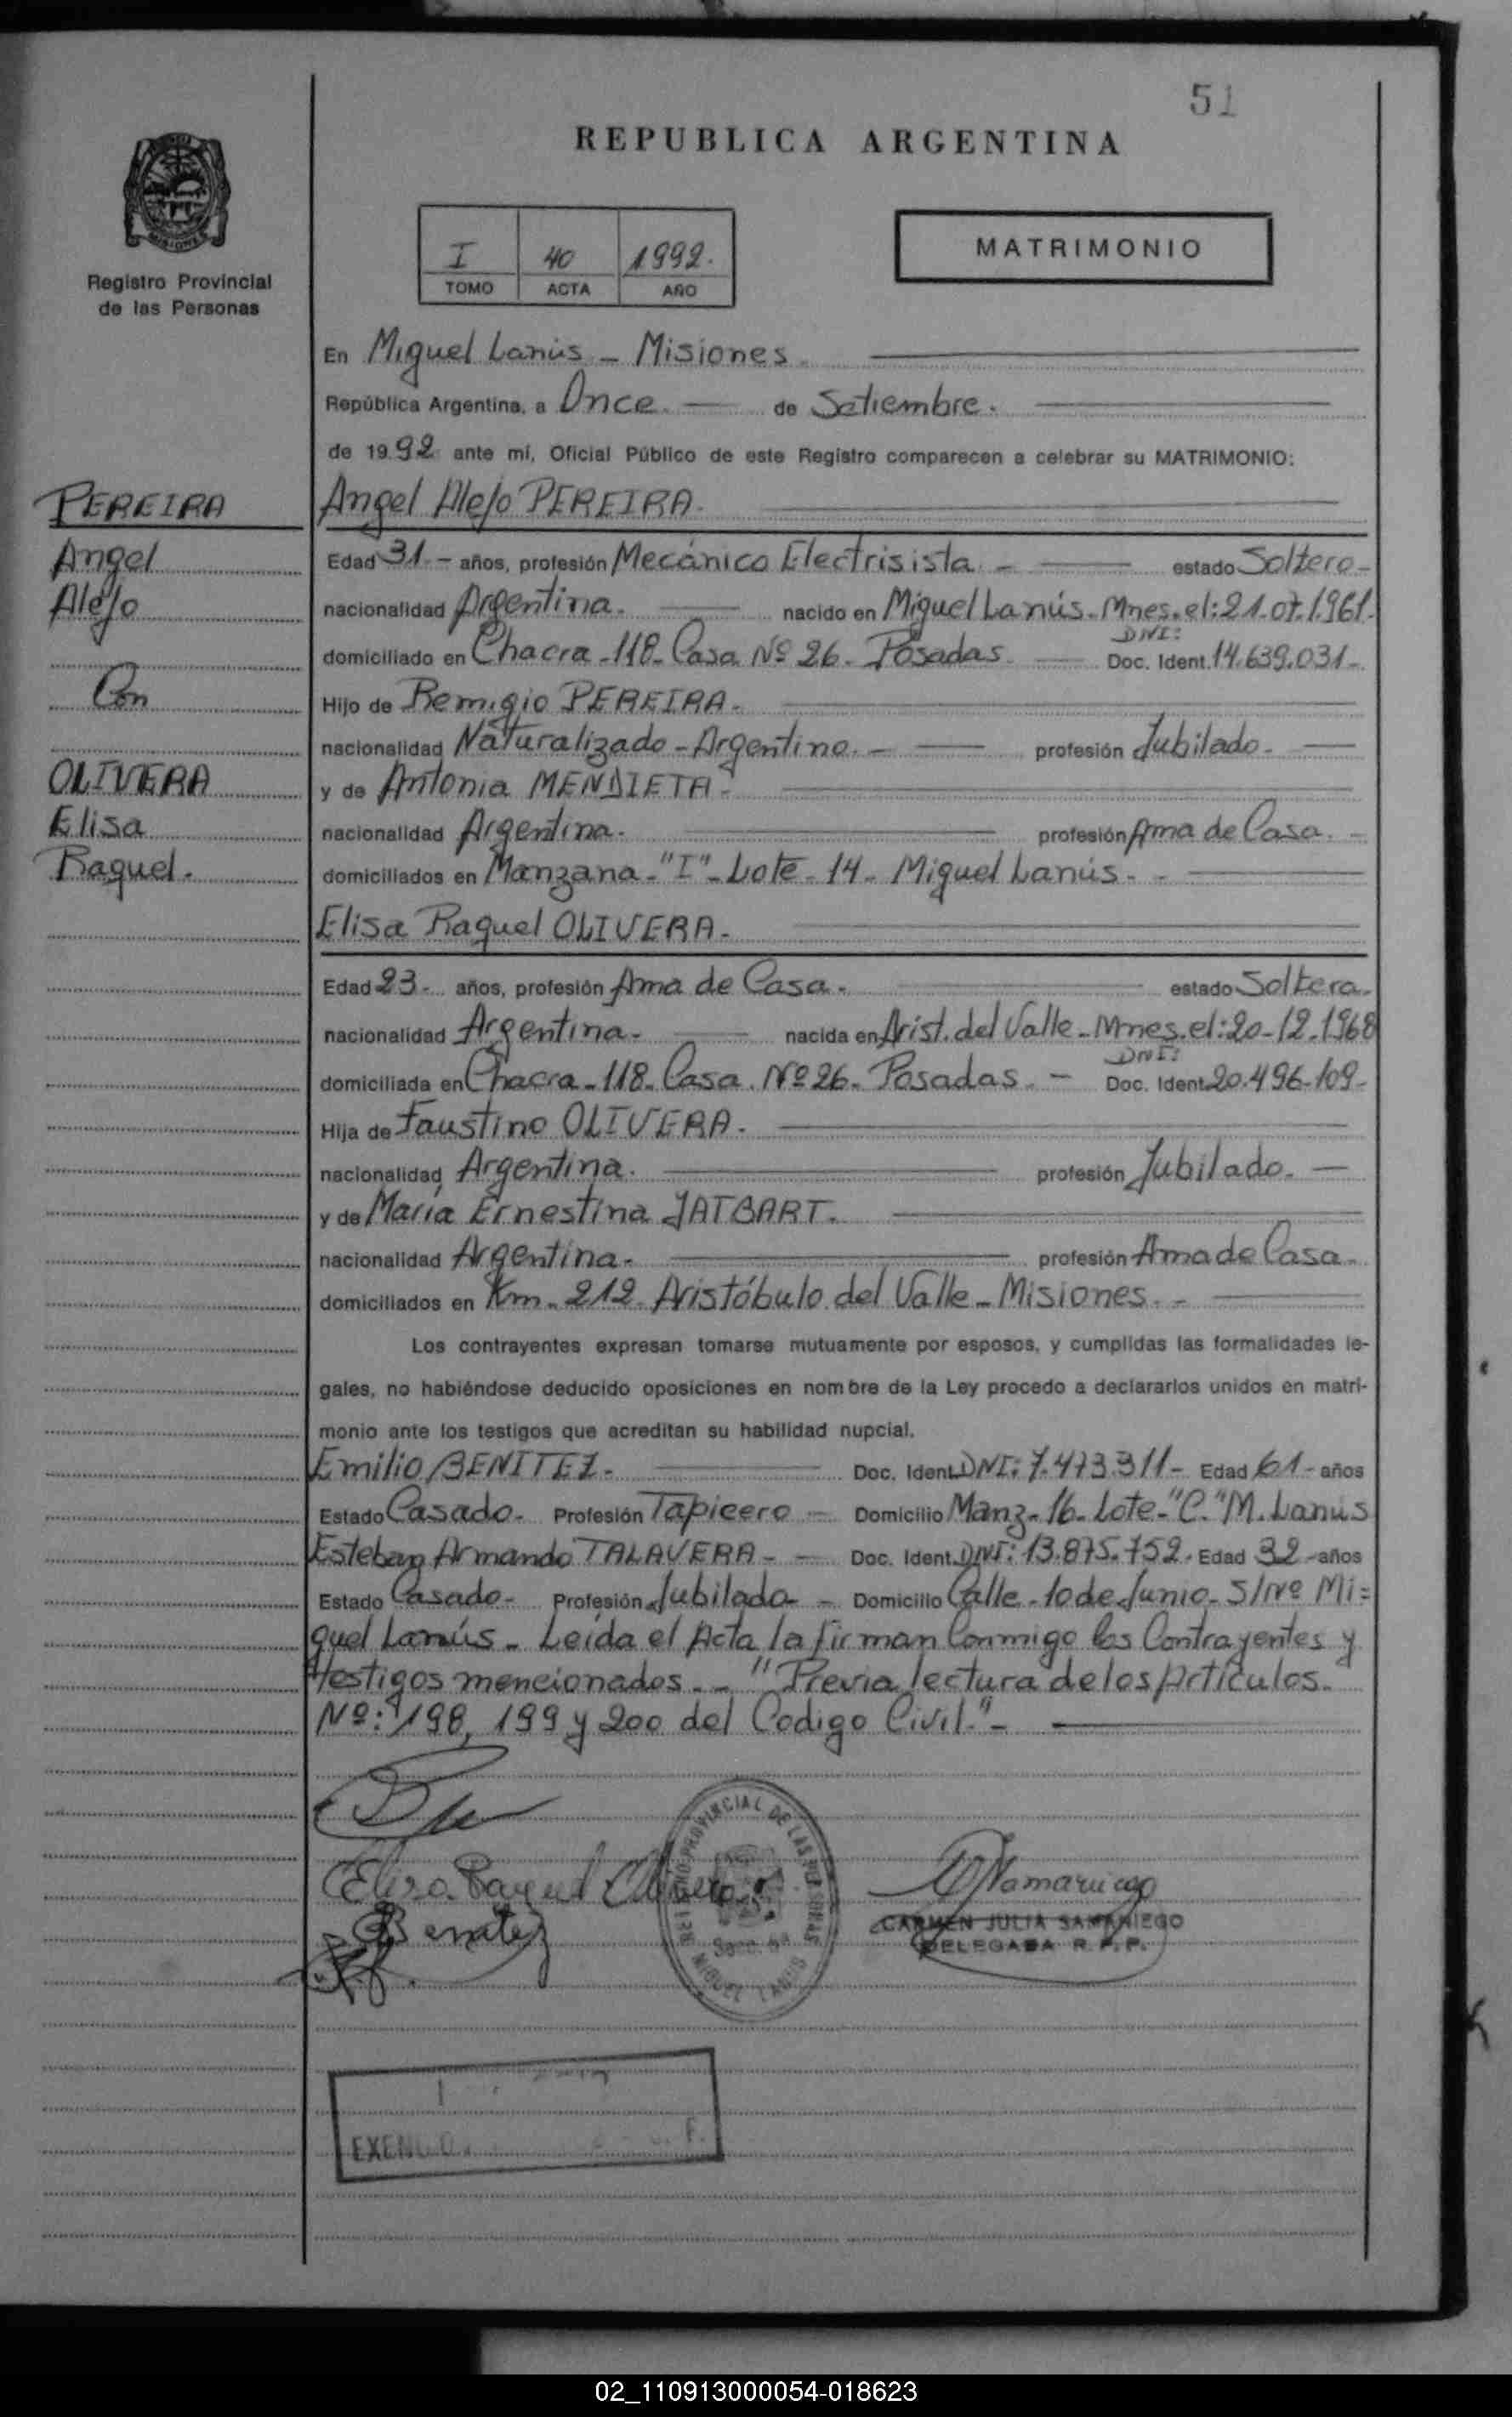 51
REPUBLICA ARGENTINA
MISIONES
Registro Provincial
de las Personas
I 40 1992.
TOMO ACTA AÑO
MATRIMONIO
En Miguel Lanús - Misiones.
República Argentina, a Once. — de Setiembre.
de 1992 ante mí, Oficial Público de este Registro comparecen a celebrar su MATRIMONIO:
PEREIRA
Angel
Alejo
Con
OLIVERA
Elisa
Raquel.
Angel Alejo PEREIRA.
Edad 31.- años, profesión Mecánico Electrisista - — estado Soltero-
nacionalidad Argentina. — nacido en Miguel Lanús. Mnes. el: 21.07.1961.
domiciliado en Chacra-118-Casa Nº 26. Posadas — DNI: Doc. Ident. 14.639.031-
Hijo de Remigio PEREIRA-
nacionalidad Naturalizado-Argentino. - — profesión Jubilado. —
y de Antonia MENDIETA-
nacionalidad Argentina. — profesión Ama de Casa. -
domiciliados en Manzana-"I"-Lote-14- Miguel Lanús. - —
Elisa Raquel OLIVERA-
Edad 23-. años, profesión Ama de Casa. — estado Soltera.
nacionalidad Argentina. — nacida en Arist. del Valle-Mnes. el: 20-12-1968
domiciliada en Chacra-118-Casa Nº 26. Posadas. - DNI: Doc. Ident. 20.496.109-
Hija de Faustino OLIVERA.
nacionalidad Argentina. — profesión Jubilado. —
y de María Ernestina JATBART.
nacionalidad Argentina. — profesión Ama de Casa.
domiciliados en Km-212. Aristóbulo del Valle-Misiones. - —
Los contrayentes expresan tomarse mutuamente por esposos, y cumplidas las formalidades le-
gales, no habiéndose deducido oposiciones en nombre de la Ley procedo a declararlos unidos en matri-
monio ante los testigos que acreditan su habilidad nupcial.
Emilio BENITEZ. — Doc. Ident. DNI: 7.473.311- Edad 61- años
Estado Casado. Profesión Tapicero - Domicilio Manz-16-Lote-"C." M. Lanus
Esteban Armando TALAVERA- — Doc. Ident. DNI: 13.875.752. Edad 32 - años
Estado Casado- Profesión Jubilado - Domicilio Calle-10 de Junio-S/Nº Mi=
guel Lanús- Leída el Acta la firman Conmigo los Contrayentes y
testigos mencionados. - "Previa lectura de los Artículos.
Nº: 198, 199 y 200 del Codigo Civil."- —
Elisa Raquel Olivera
Benitez
REGISTRO PROVINCIAL DE LAS PERSONAS
MIGUEL LANUS
CARMEN JULIA SAMANIEGO
DELEGADA R.P.P.
02_110913000054-018623